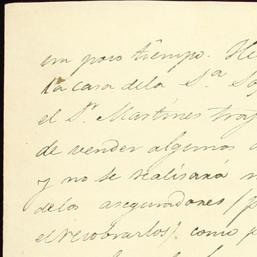 un poco tiempo. He
la casa dela S.ª So
el S.r Martínes tras
de vender algunos
y no se realisará
delos aseguradores (p
el recobrarlos). como p